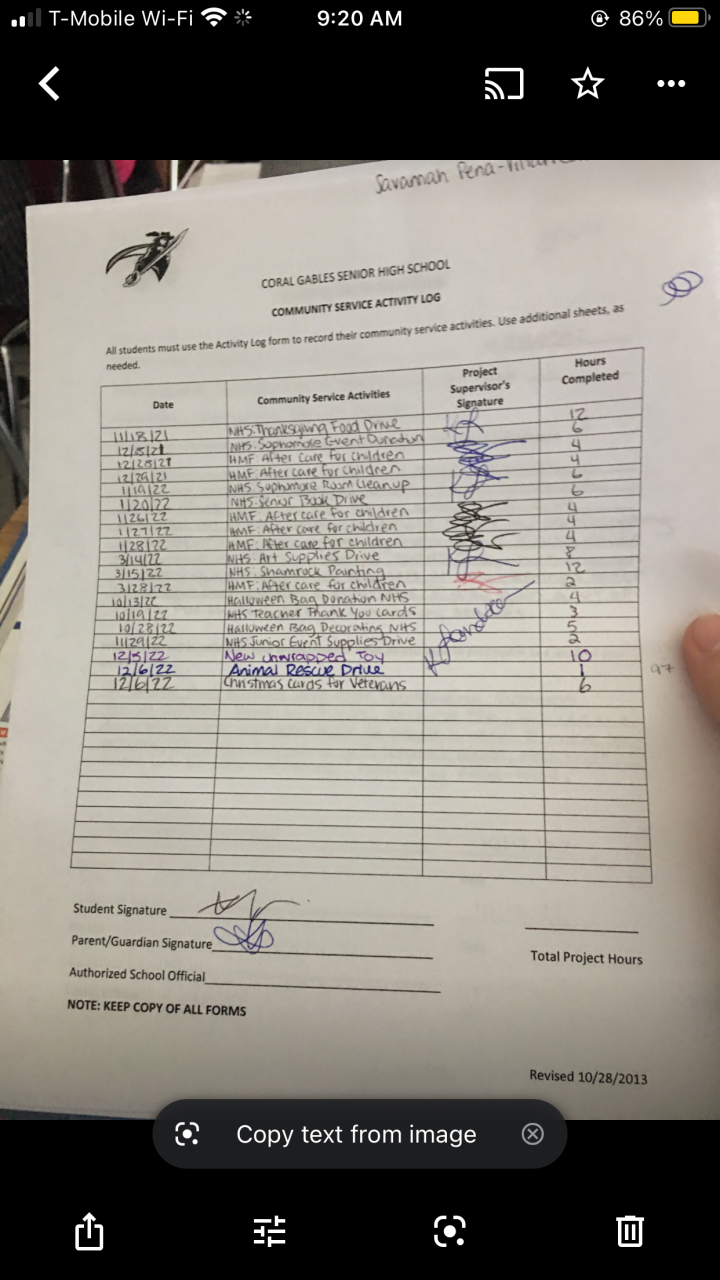 T-Mobile Wi-Fi 9:20 AM 86%
Savannah Pena-
CORAL GABLES SENIOR HIGH SCHOOL
COMMUNITY SERVICE ACTIVITY LOG
All students must use the Activity Log form to record their community service activities. Use additional sheets, as
needed.
Date Community Service Activities Project Supervisor's Signature Hours Completed
11/18/21 NHS: Thanksgiving Food Drive 12
12/8/21 NHS: Sophomore Event Donation 6
12/28/21 HMF: After care for children 4
12/29/21 HMF: After care for children 4
1/19/22 NHS Sophomore Room Cleanup 6
1/20/22 NHS: Senior Book Drive 6
1/26/22 HMF: After care for children 4
1/27/22 HMF: After care for children 4
1/28/22 HMF: After care for children 4
3/14/22 NHS: Art Supplies Drive 8
3/15/22 NHS: Shamrock Painting 12
3/28/22 HMF: After care for children 2
10/13/22 Halloween Bag Donation NHS 4
10/19/22 NHS Teacher Thank You cards 3
10/28/22 Halloween Bag Decorating NHS 5
11/29/22 NHS Junior Event Supplies Drive 2
12/5/22 New Unwrapped Toy 10
12/6/22 Animal Rescue Drive 1
12/6/22 Christmas Cards for Veterans 6
97
Student Signature
Parent/Guardian Signature
Total Project Hours
Authorized School Official
NOTE: KEEP COPY OF ALL FORMS
Revised 10/28/2013
Copy text from image